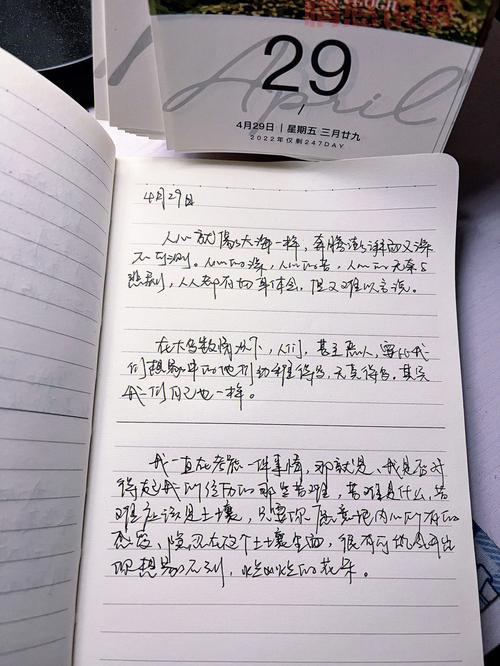 29
April
4月29日 | 星期五 三月廿九
2022年仅剩247DAY
4月29日
人心就像大海一样,奔腾澎湃而又深
不可测。人心的深,人心的苦,人心的无奈与
悲剧,人人都有切身体会,但又难以言说。
在大多数情况下,人们,甚至恶人,要比我
们想象中的他们幼稚得多,天真得多,其实
我们自己也一样。
我一直在考虑一件事情,那就是,我是否对
得起我所经历的那些苦难,苦难是什么,苦
难应该是土壤,只要你愿意把内心所有的
感受、隐忍在这个土壤里面,很有可能会开出
你想象不到,灿烂的花朵。